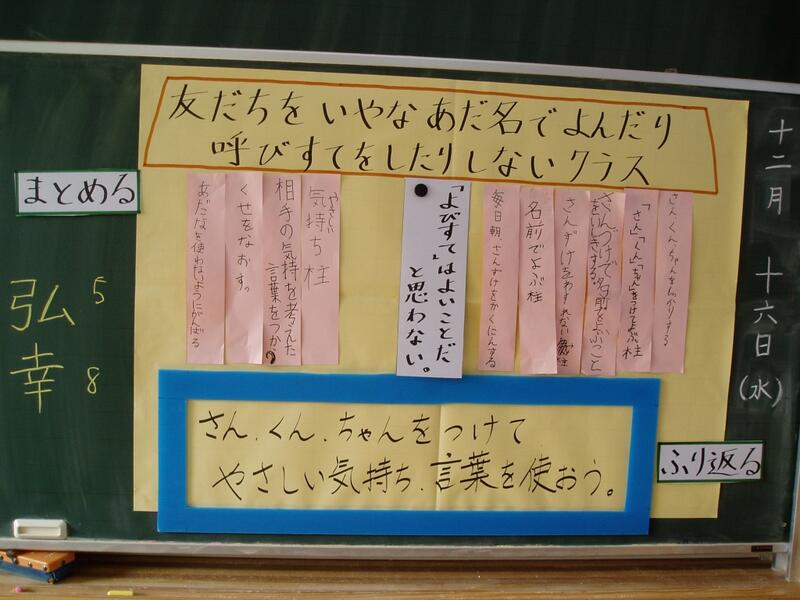 友だちをいやなあだ名でよんだり
呼びすてをしたりしないクラス
十二月 十六日(水)
まとめる
さん、くん、ちゃんをしっかりする
「さん」「くん」「ちゃん」をつけてよぶ柱
さんづけで名前をよぶこと
をいしきする。
さんずけをわすれない
名前でよぶ柱
毎日朝、さんずけをかくにんする
「よびすて」はよいことだ
と思わない。
やさしい
気持ち柱
相手の気持ちを考えた
言葉をつかう
くせをなおす。
あだなを使わないようにがんばる
弘 5
幸 8
さん、くん、ちゃんをつけて
やさしい気持ち、言葉を使おう。
ふり返る